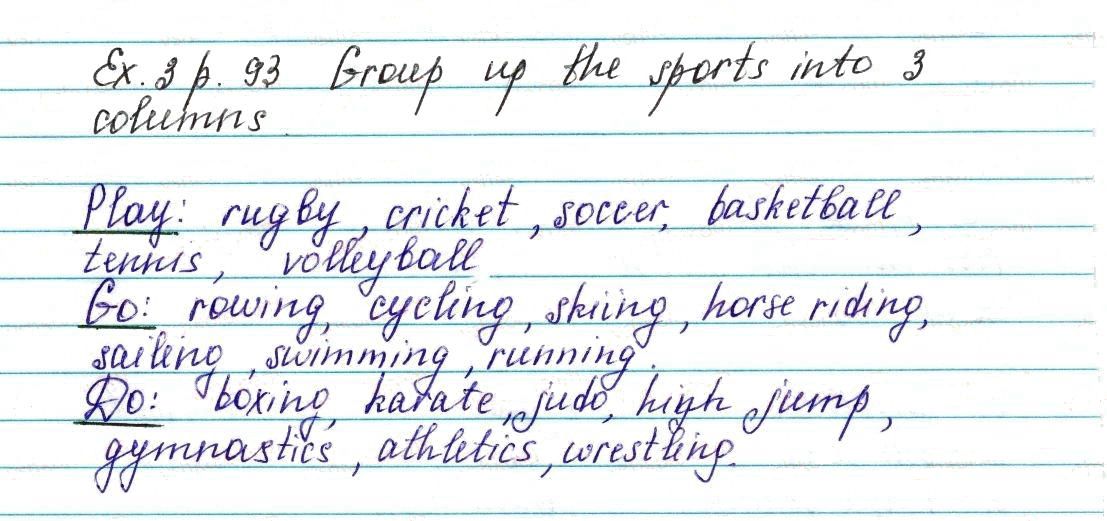 Ex. 3 p. 93 Group up the sports into 3
columns
Play: rugby, cricket, soccer, basketball,
tennis, volleyball
Go: rowing, cycling, skiing, horse riding,
sailing, swimming, running.
Do: boxing, karate, judo, high jump,
gymnastics, athletics, wrestling.